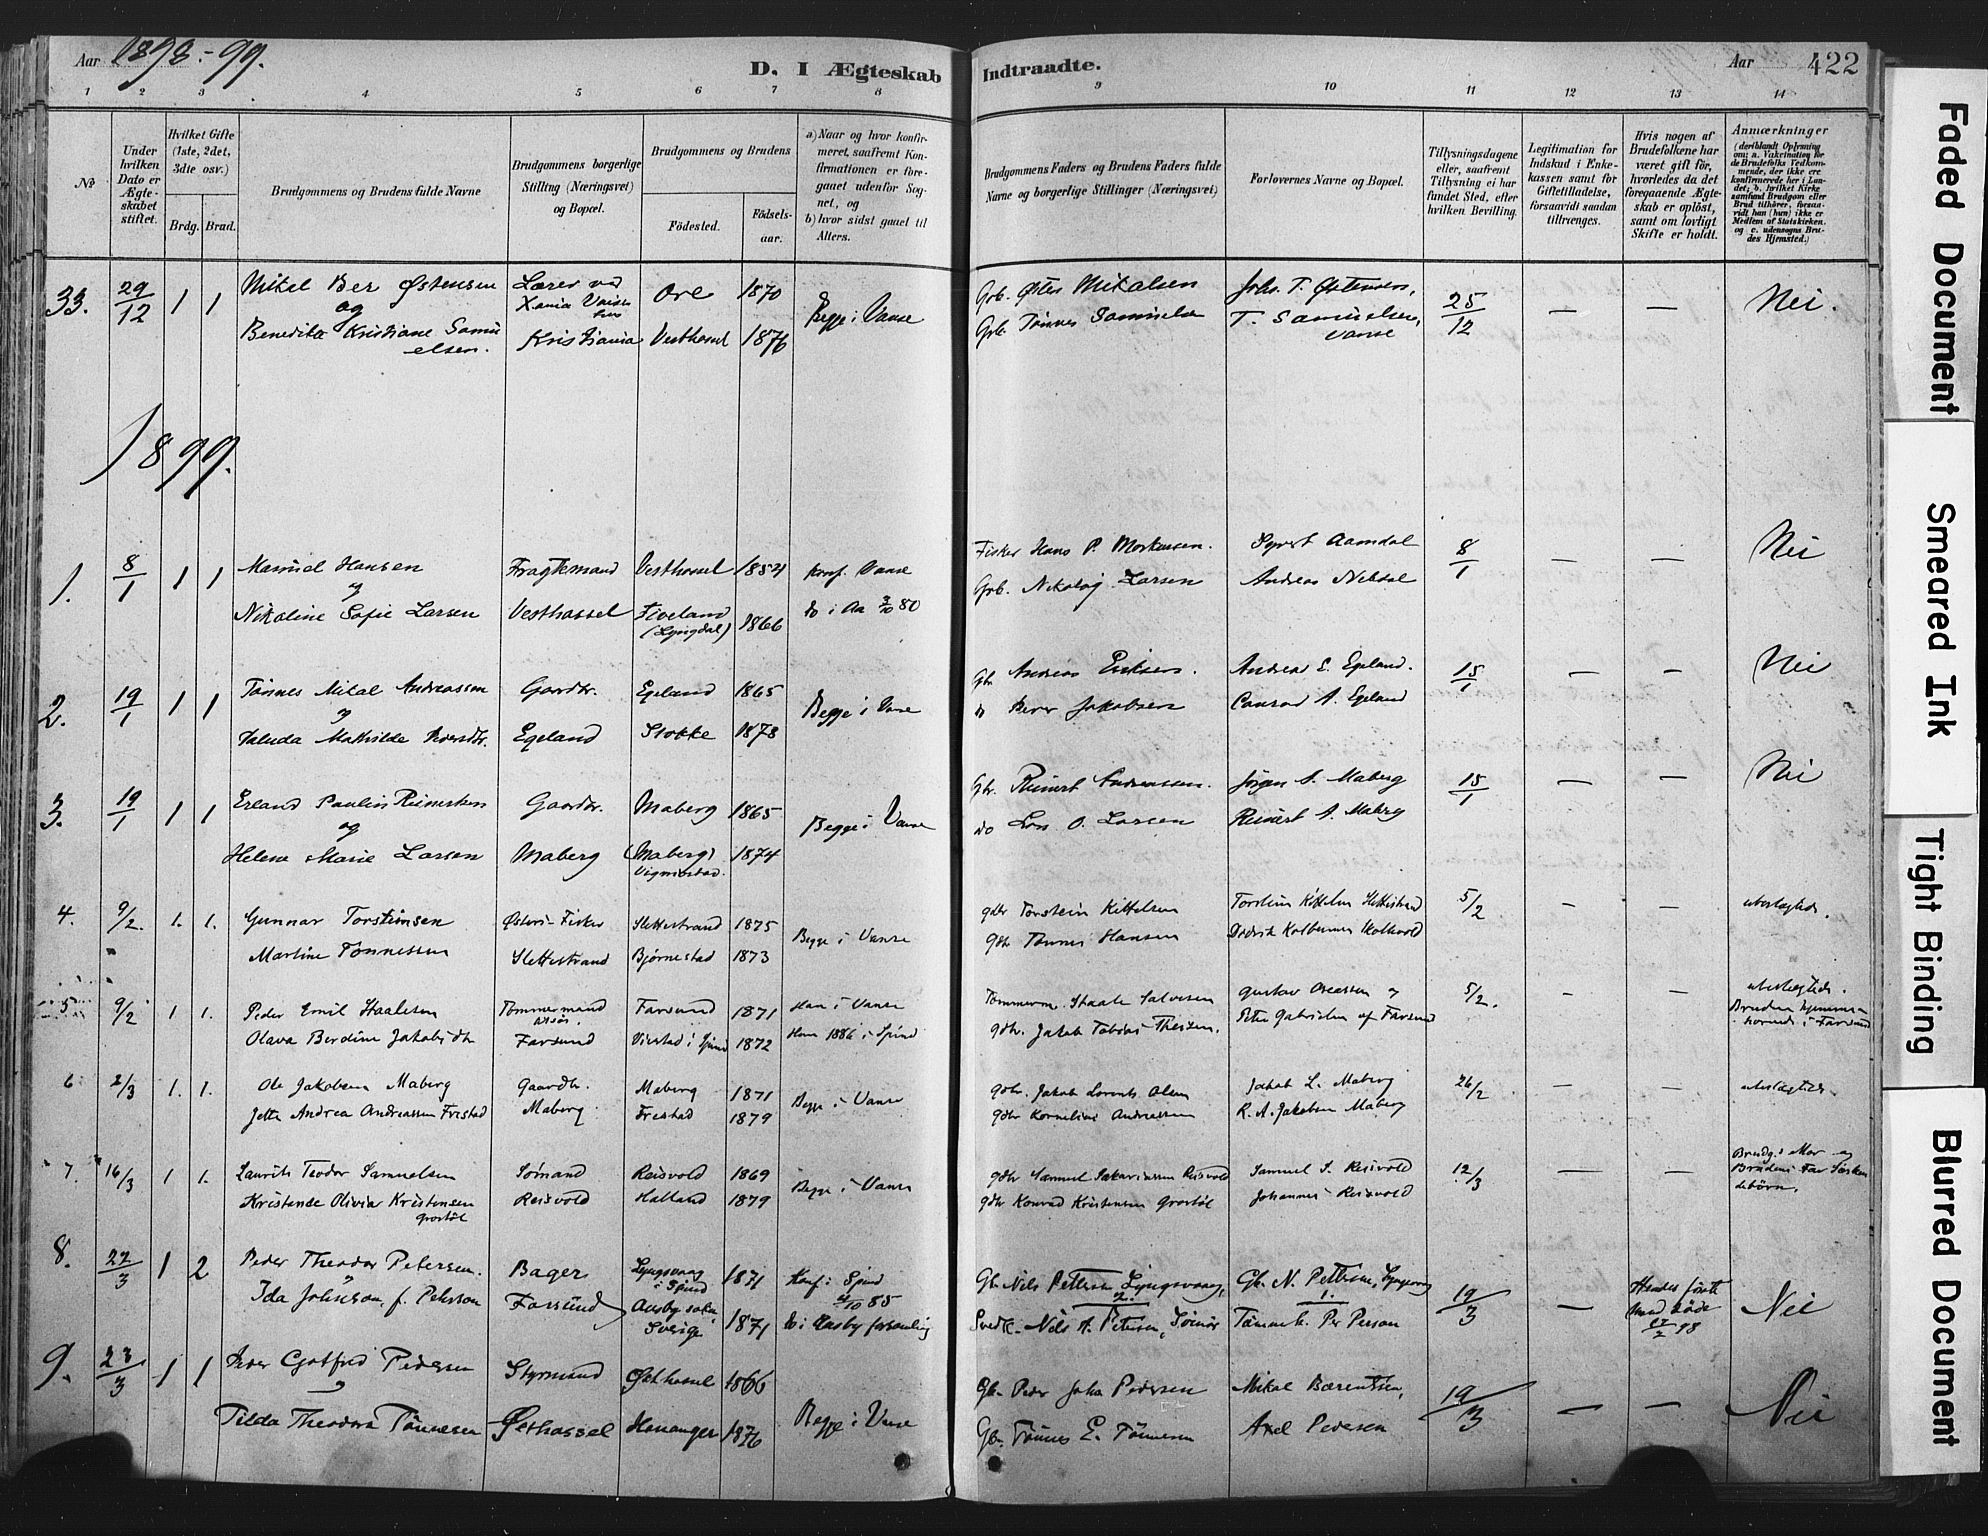 Aar 1898.-99.
D. I Ægteskab Indtraadte.
Aar 422
1 2 3 4 5 6 7 8 9 10 11 12 13 14
No
Under hvilken Dato er Ægteskabet stiftet.
Hvilket Gifte (1ste, 2det, 3die osv.)
Brdg. Brud.
Brudgommens og Brudens fulde Navne
Brudgommens borgerlige Stilling (Næringsvei) og Bopæl.
Brudgommens og Brudens
Fødested. Fødselsaar.
a) Naar og hvor konfirmeret, saafremt Konfirmationen er foregaaet udenfor Sognet, og
b) hvor sidst gaaet til Alters.
Brudgommens Faders og Brudens Faders fulde Navne og borgerlige Stillinger (Næringsvei)
Forlovernes Navne og Bopæl.
Tillysningsdagene eller, saafremt Tillysning ei har fundet Sted, efter hvilken Bevilling.
Legitimation for Indskud i Enkekassen samt for Giftetilladelse, forsaavidt saadan tiltrænges.
Hvis nogen af Brudefolkene har været gift før, hvorledes da det foregaaende Ægteskab er opløst, samt om lovligt Skifte er holdt.
Anmærkninger (deriblandt Oplysning om: a. Vakcination for de Brudefolks Vedkommende, der ikke ere konfirmerede her i Landet; b. hvilket Kirkesamfund Brudgom eller Brud tilhører, forsaavidt han (hun) ikke er Medlem af Statskirken, og c. udensogns Brudes Hjemsted.)
33. 29/12 1 1 Mikal Ber Østensen Lærer ved Ore 1870 Begge i Vanse Gbr. Østen Mikalsen Johs. T. Østensen, 25/12 — — Nei.
og Xania
Benedikte Kristiane Samuelsen. Kristiania Vesthassel 1876 Gbr. Tønnes Samuelsen T. Samuelsen, Vanse
1899.
1. 8/1 1 1 Manuel Hansen Fragtemand Vesthassel 1854 Konf. Vanse Fisker Hans P. Mortensen. Syvert Aamdal 8/1 — — Nei
og
Nikoline Sofie Larsen Vesthassel Fiveland (Lyngdal) 1866 do i Aa 3/10 80 Gbr. Nikolay Larsen Andreas
2. 19/1 1 1 Tønnes Mikal Andreassen Gaardbr. Egeland 1865 Begge i Vanse Gbr Andreas Eriksen. Andreas E. Egeland. 15/1 — — Nei
og
Mathilde Egeland Stokke 1878 do Berer Jakobsen Conrad A. Egeland
3. 19/1 1 1 Erland Paulin Reinertsen Gaardbr. Maberg 1865 Begge i Vanse Gbr. Reinert Andreassen. Jørgen A. Maberg 15/1 — — Nei
og
Helene Marie Larsen Maberg (Maberg) Vigmostad. 1874 do Lars O. Larsen Reinert A. Maberg
4. 9/2. 1. 1. Gunnar Torsteinsen Fisker Slettestrand 1875 Begge i Vanse gdbr Torstein Kittelsen Torstein Kittelsen Slettestrand 5/2 — — ubeslægtede.
Martine Tønnessen Slettestrand Bjørnestad 1873 Gbr Tønnes Hansen
5 9/2 1 1. Peder Emil Staalesen Tømmermand Farsund 1871 Han i Vanse Tømmerm. Staale Salvesen Gustav og 5/2. — — ubeslægtede.
Olava Berdine Jakobsdtr Farsund i Spind 1872 Hun 1886 i Spind gdbr. Jakob Tobias Peter Gabrielsen af Farsund Bruden hjemmehørende i Farsund
6 2/3 1. 1. Ole Jakobsen Maberg Gaardbr. Maberg 1871 Begge i Vanse gdbr. Jakob Lorents Olsen Jakob L. Maberg 26/2 — — ubeslægtede.
Jette Andrea Andreassen Frestad Maberg. Frestad 1879 gdbr Kornelius Andreassen R. A. Jakobsen Maberg
7. 16/3 1 1. Laurits Teodor Samuelsen Sømand Reisvold 1869 Begge i Vanse gdbr Samuel Sakariassen Reisvold Samuel S. Reisvold 12/3 — — Brudg.s Mor og Brudens Far Søskendebørn.
Kristense Olivia Kristensen Grostøl Reisvold Helland 1879 gdbr Konrad Kristensen Grostøl Johannes Reisvold
8. 22/3 1 2 Peder Theodor Petersen. Bager Lyngsvaag i Spind 1871 Konf. i Spind 4/10 85 Gb. Nils Pettersen Lyngsvaag, Gb. N. Pettersen, Lyngsvaag 19/3 — Hendes første Mand døde 27/2 98 Nei
Ida Johnson f. Pehrson Farsund Sverige 1871 do i Ausby forsamling Svedk. Nils A. Petersen, Tømmerk. Per Person
9. 23/3 1 1 Gotfred Pedersen Styrmand Østhassel 1866 Begge i Vanse Gb. Peder Joha Pedersen Mikal Bærentsen, 19/3 — — Nei
og
Tilda Theodora Tønnesen Østhassel Hananger 1876 Gb. Tønnes E. Tønnesen Axel Pedersen
Faded Document
Smeared Ink
Tight Binding
Blurred Document